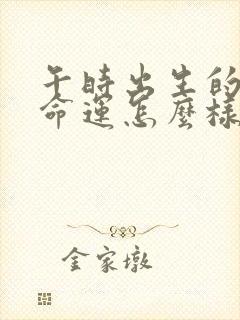 午時出生的
命運怎麼樣
金家墩